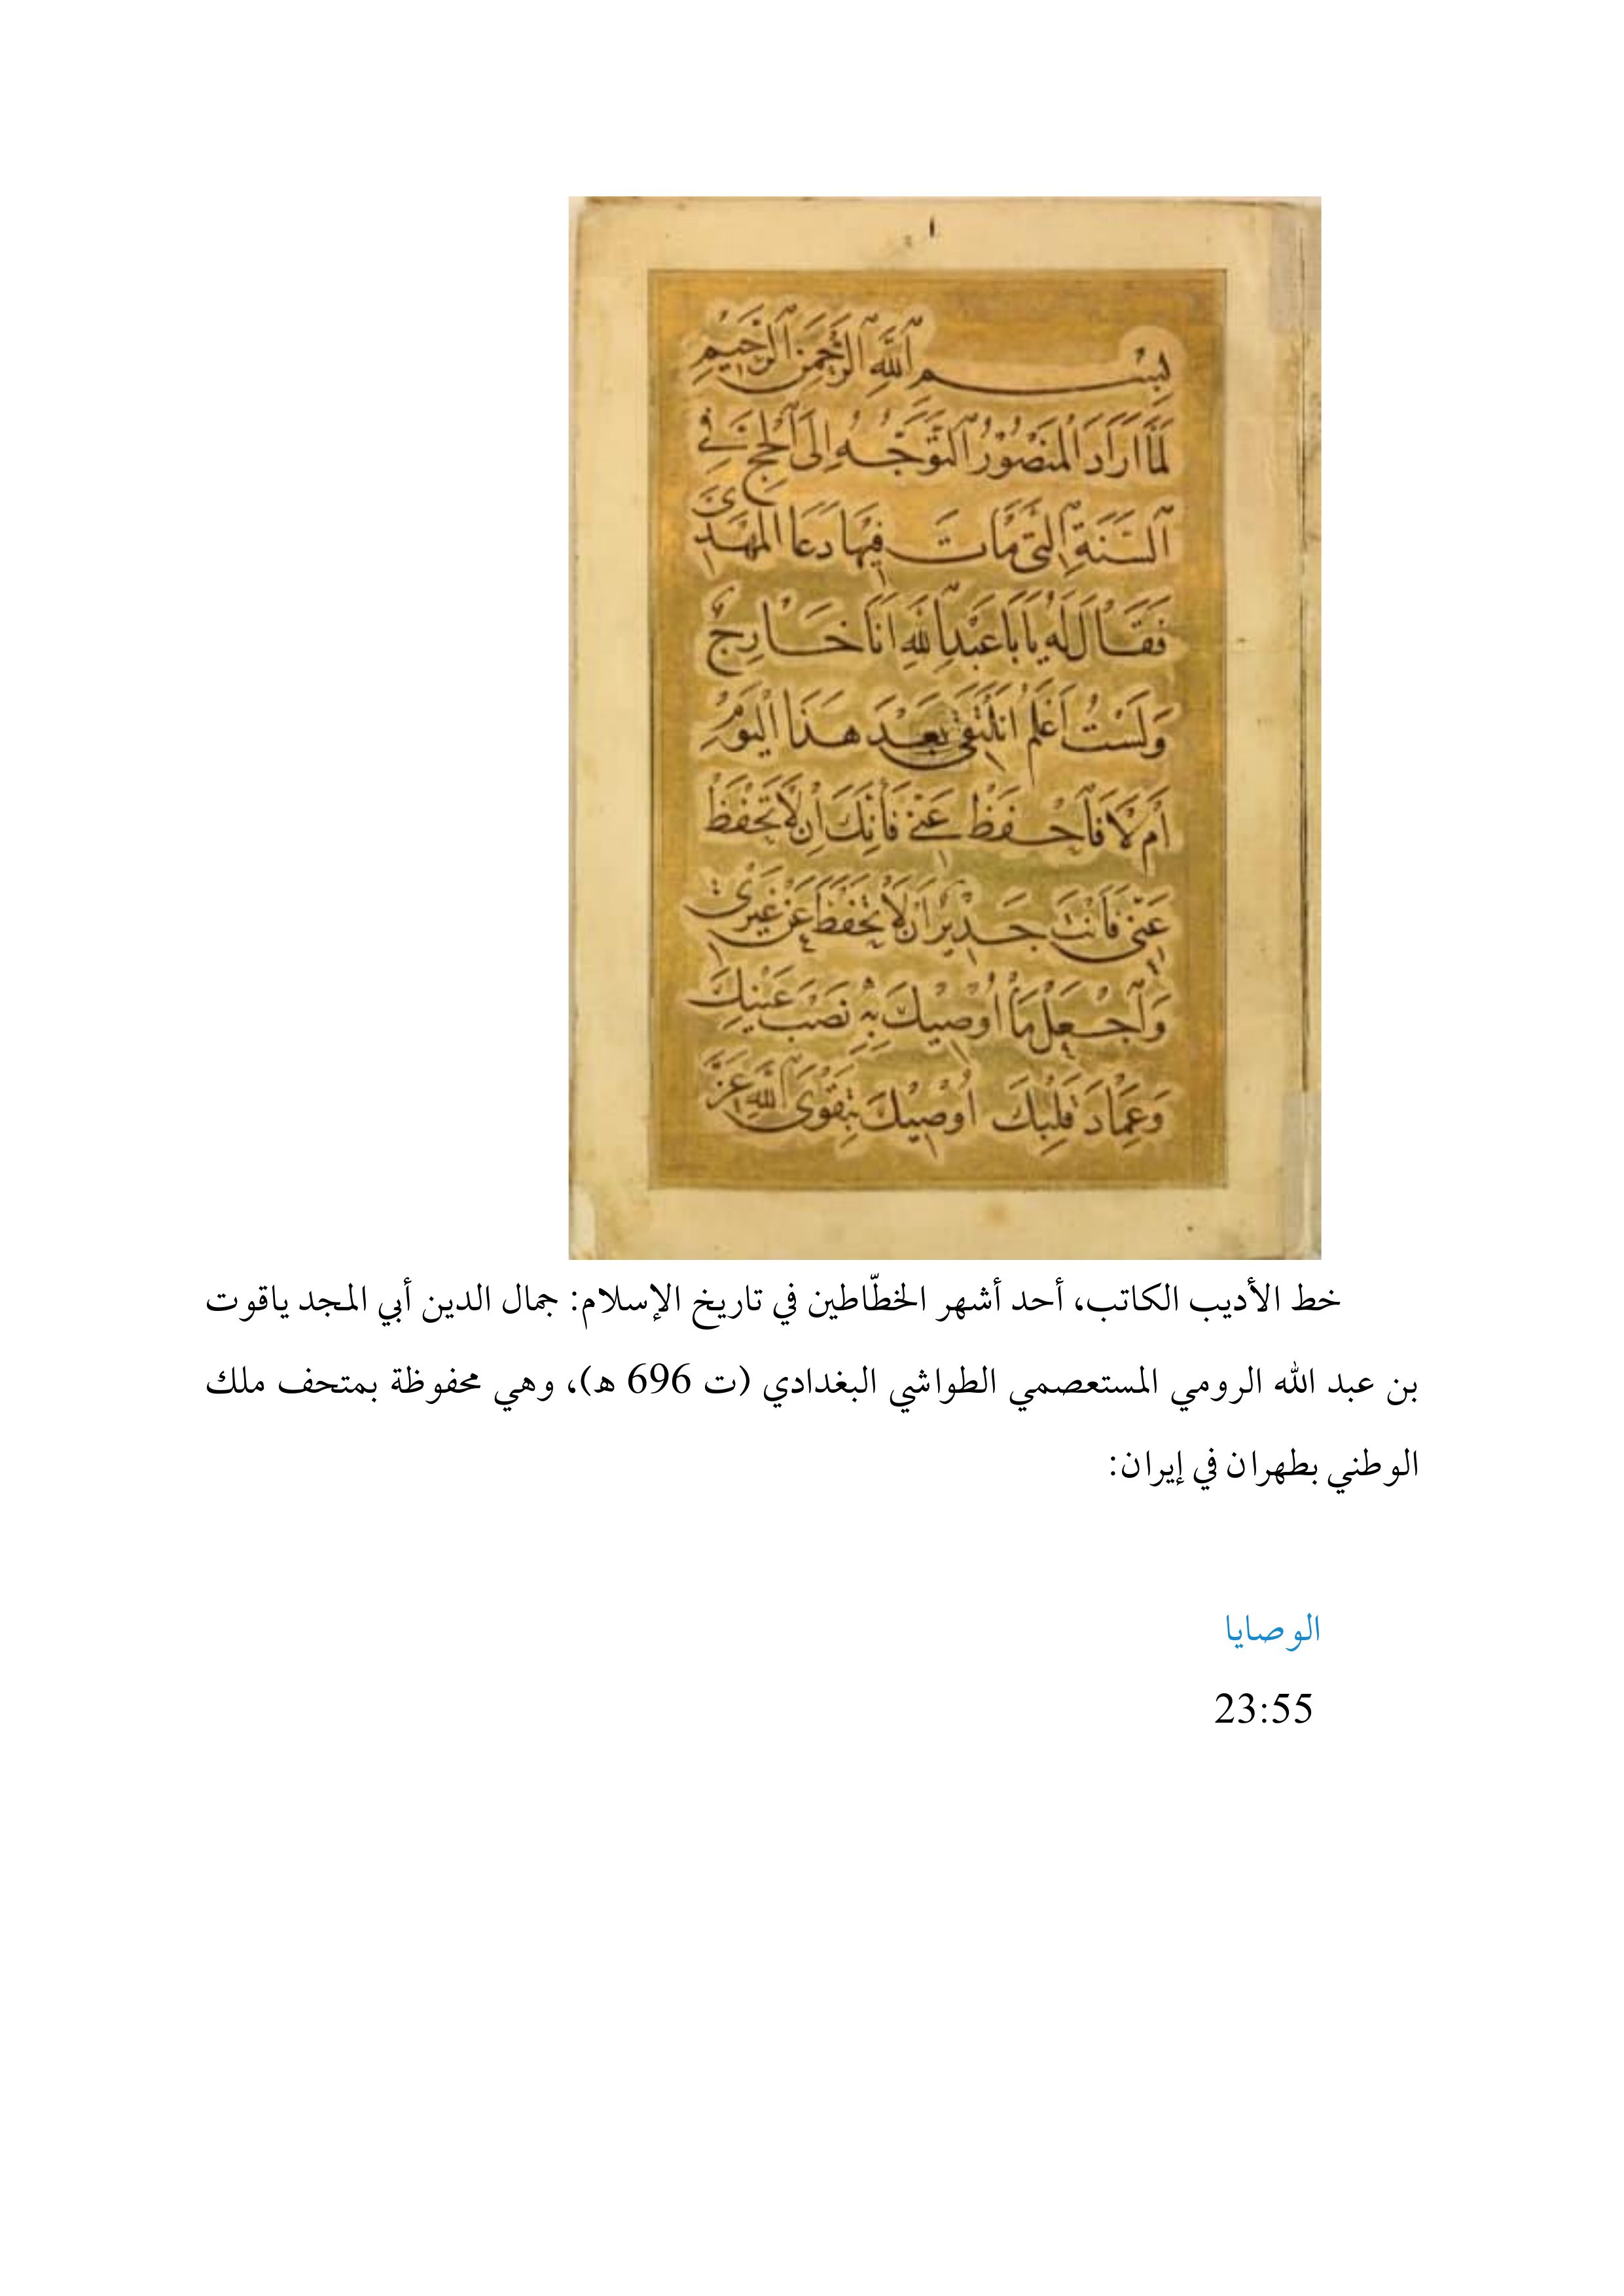 ١
بِسْمِ ٱللَّهِ ٱلرَّحْمَنِ ٱلرَّحِيمِ
لَمَّا اَرَادَ الْمَنْصُوْرُ التَّوَجُّهَ اِلَى الْحَجِّ فِي
السَّنَةِ الَّتِي مَاتَ فِيْهَا دَعَا الْمَهْدِيَّ
فَقَالَ لَهُ يَا بَا عَبْدِ اللَّهِ اَنَا خَارِجٌ
وَلَسْتُ اَعْلَمُ اَنَلْتَقِي بَعْدَ هَذَا الْيَوْمِ
أَمْ لَا فَاحْفَظْ عَنِّي فَاِنَّكَ اِنْ لَا تَحْفَظْ
عَنِّي فَاَنْتَ جَدِيْرٌ اَنْ لَا تَحْفَظَ عَنْ غَيْرِي
وَاجْعَلْ مَا اُوْصِيْكَ بِهِ نَصْبَ عَيْنِكَ
وَعِمَادَ قَلْبِكَ اُوْصِيْكَ بِتَقْوَى اللَّهِ عَزَّ
خط الأديب الكاتب، أحد أشهر الخطّاطين في تاريخ الإسلام: جمال الدين أبي المجد ياقوت
بن عبد الله الرومي المستعصمي الطواشي البغدادي (ت 696 ه)، وهي محفوظة بمتحف ملك
الوطني بطهران في إيران:
الوصايا
23:55